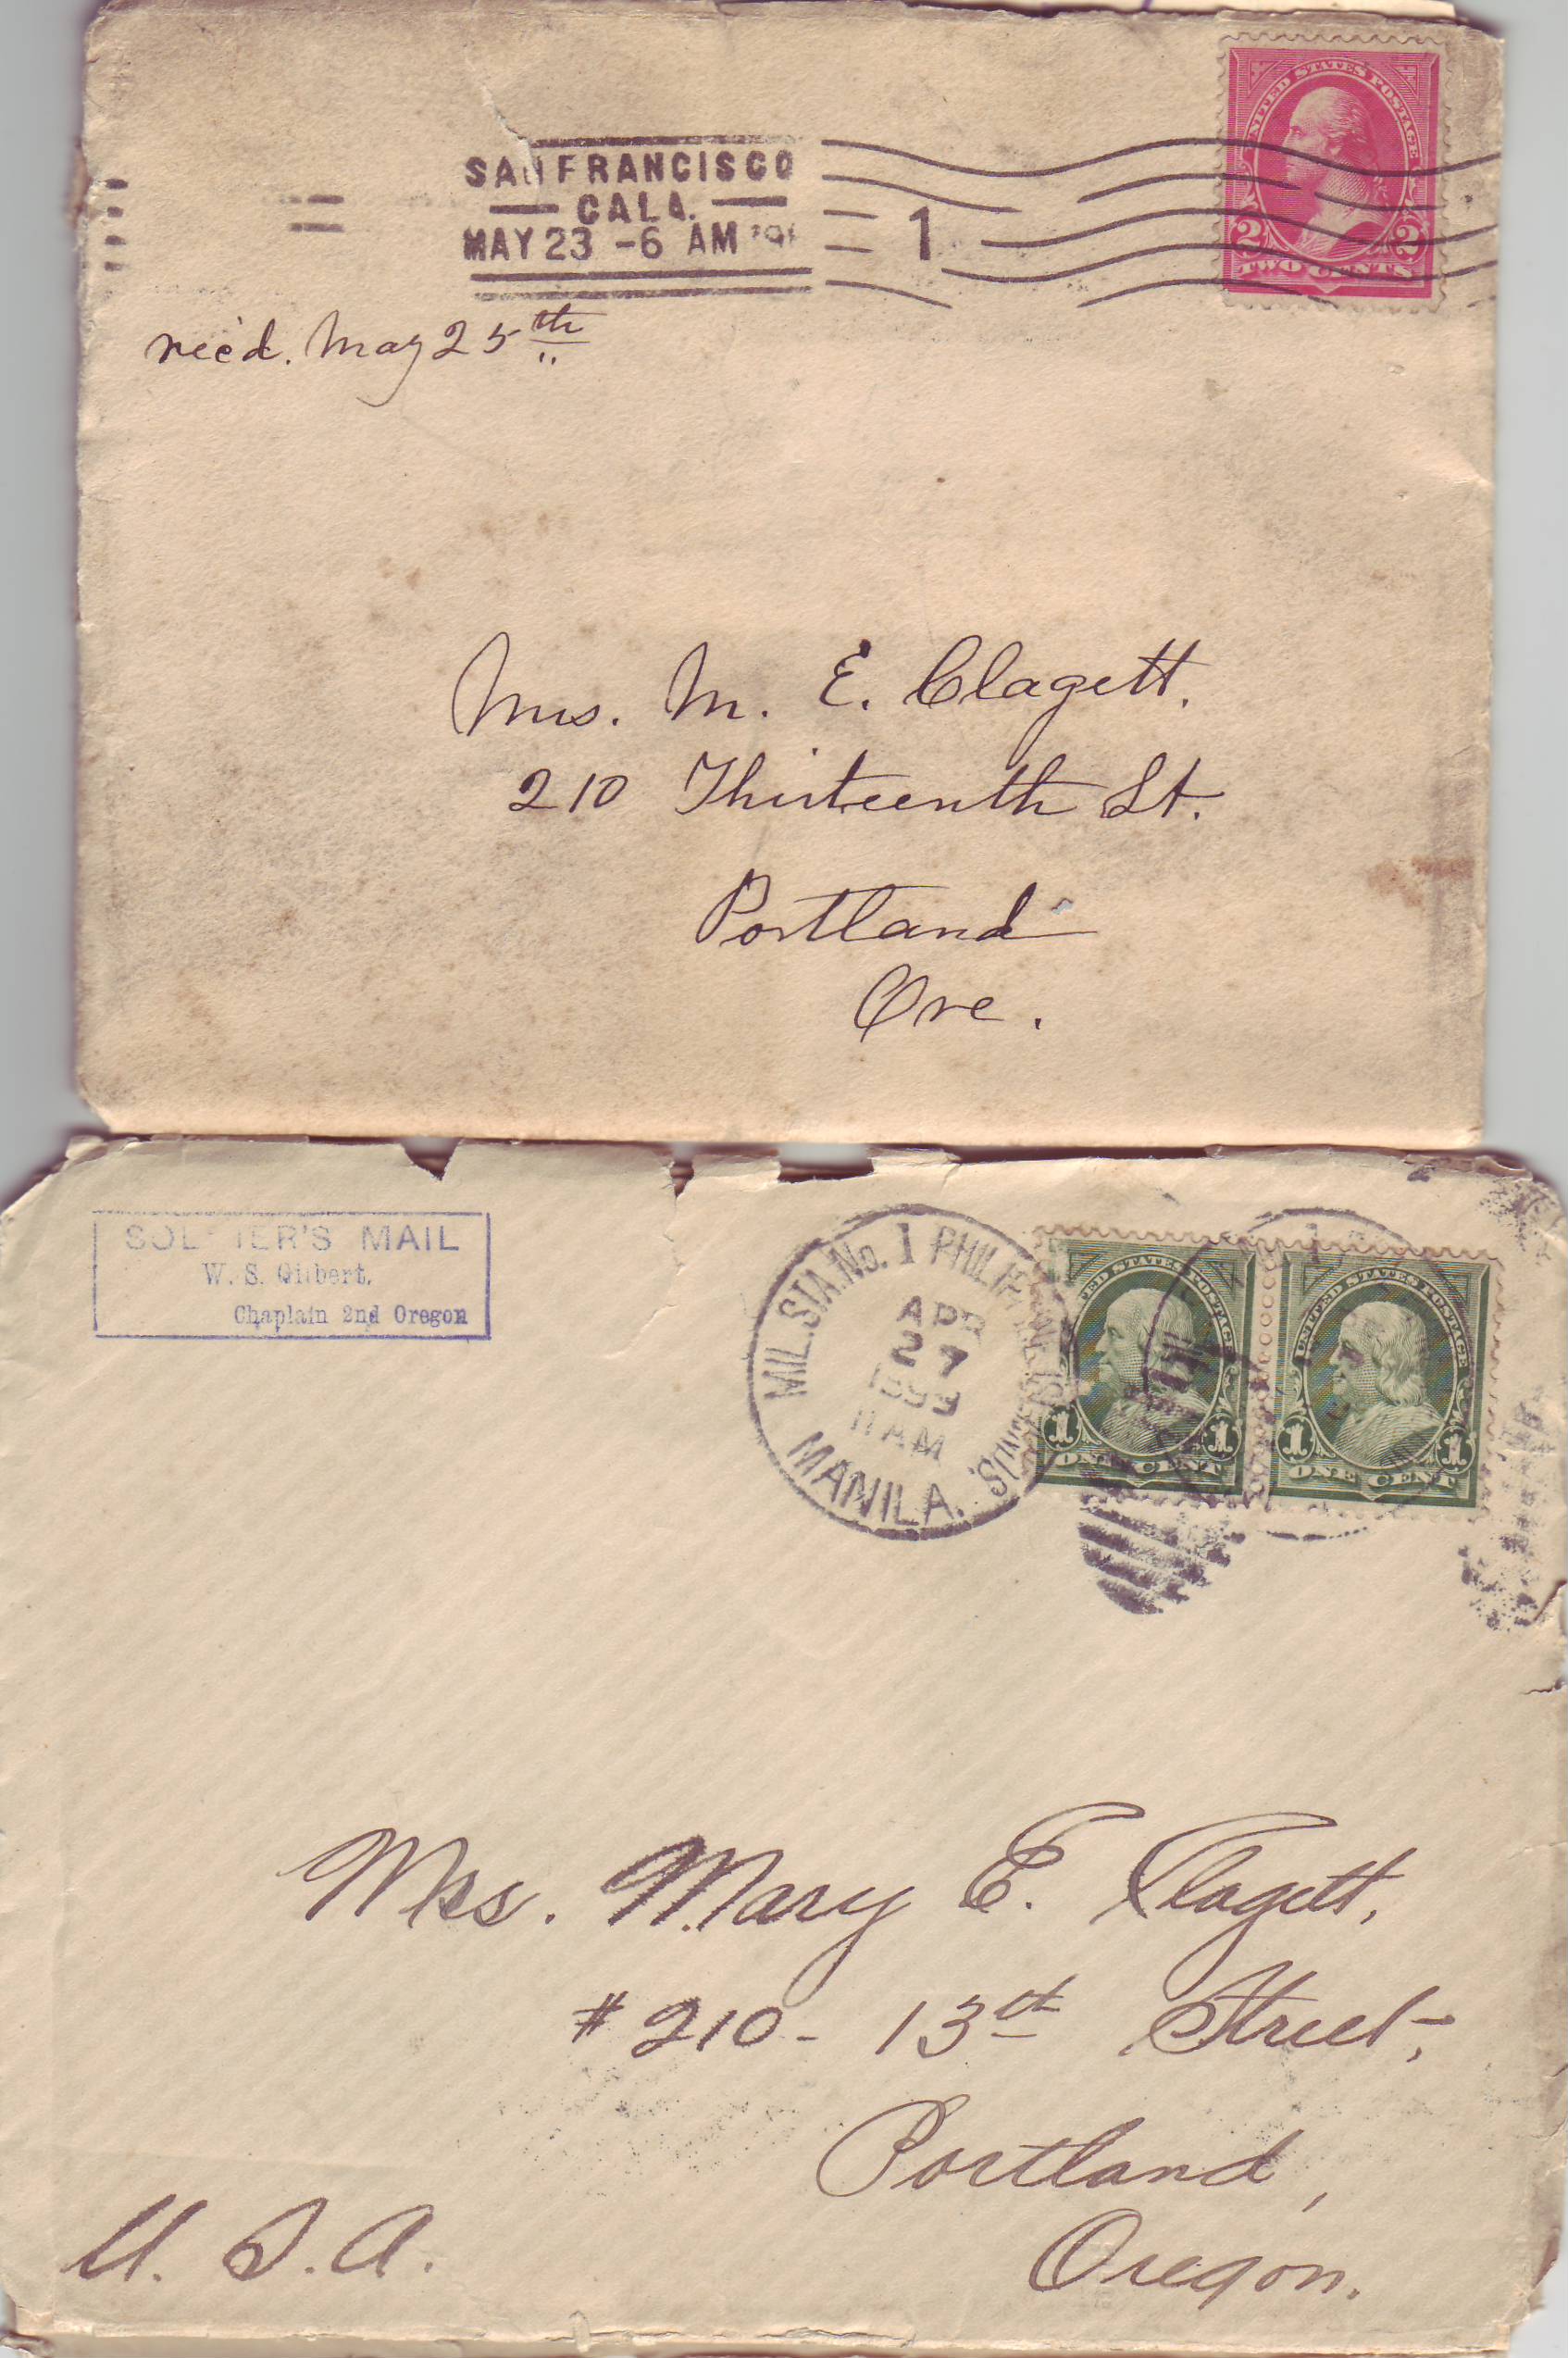 SAN FRANCISCO
CALA.
MAY 23 - 6 AM
1
UNITED STATES POSTAGE
2 2
TWO CENTS
rec'd. May 25th
Mrs. M. E. Clagett.
210 Thirteenth St.
Portland
Ore.
SOLDIER'S MAIL
W. S. Gilbert,
Chaplain 2nd Oregon
MIL. STA. No. 1 PHILIPPINE
APR
27
1899
11 AM
MANILA.
UNITED STATES POSTAGE
1 1
ONE CENT
UNITED STATES POSTAGE
1 1
ONE CENT
Mrs. Mary E. Clagett,
# 210 - 13th Street,
Portland,
Oregon.
U. S. A.